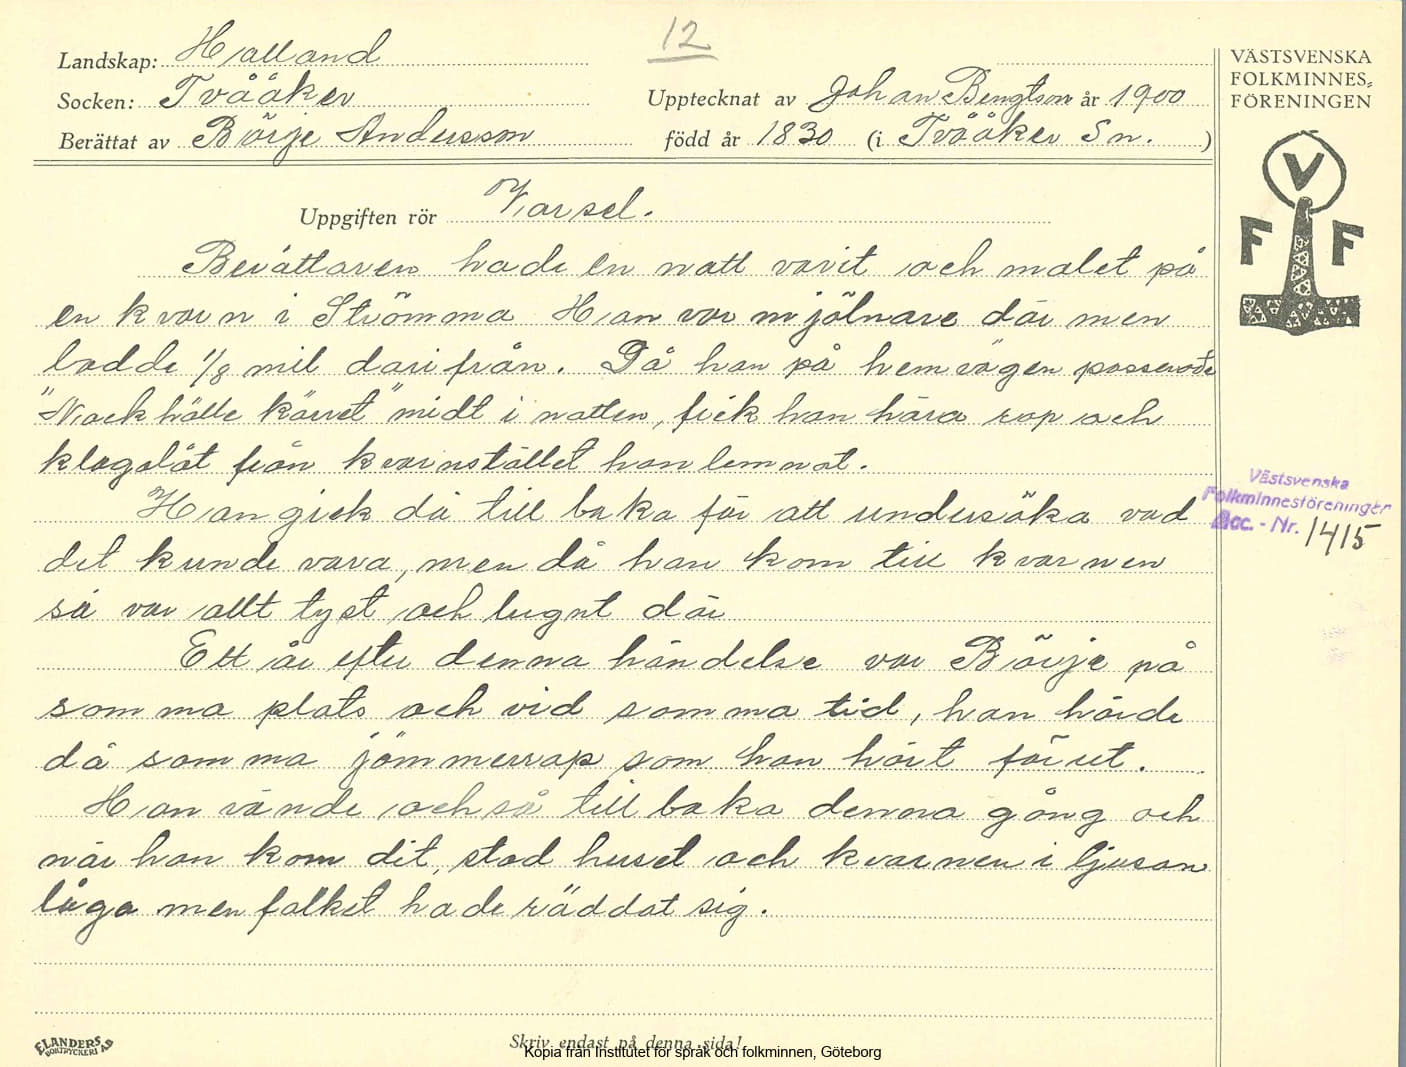 12
Landskap: Halland
Socken: Tvååker
Upptecknat av Johan Bengtson år 1900
Berättat av Börje Andersson
född år 1830 (i Tvååker Sn. )
VÄSTSVENSKA
FOLKMINNES-
FÖRENINGEN
V
F F
Uppgiften rör Varsel.
Berättaren hade en natt varit och malet på
en kvarn i Strömma Han var mjölnare där men
bodde 1/8 mil därifrån. Då han på hemvägen passerade
"Nackhälle kärret" midt i natten, fick han höra rop och
klagolåt från kvarnstället han lemnat.
Han gick då till baka för att undersöka vad
det kunde vara, men då han kom till kvarnen
så var allt tyst och lugnt där
Ett år efter denna händelse var Börje på
samma plats och vid samma tid, han hörde
då samma jämmerrop som han hört förut.
Han vände också till baka denna gång och
när han kom dit, stod huset och kvarnen i ljusan
låga men folket hade räddat sig.
Västsvenska
Folkminnesföreningen
Acc. - Nr. 1415
ELANDERS
BOKTRYCKERI AB
Skriv endast på denna sida!
Kopia från Institutet för språk och folkminnen, Göteborg